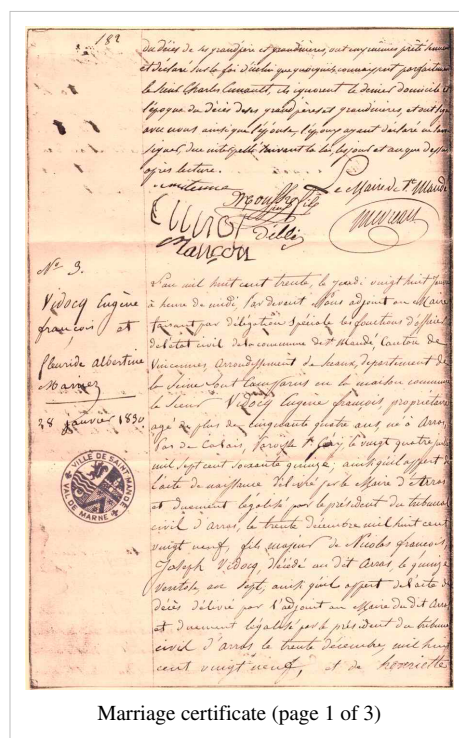 182
du décès de ses grandpère et grandmères, ont eux mêmes prêté serment
et déclaré sur la foi du serment que quoiqu'ils connaissent parfaitement
le Sieur Charles, ils ignorent le dernier domicile et
l'époque du décès de ses grandpères et grandmères, et ont signé
avec nous ainsi que l'épouse, l'époux ayant déclaré ne savoir
signer, de ce interpellé suivant la loi, les jour et an que dessus
après lecture.
Le Maire de St Mandé
Mançon
No 3.
Vidocq Eugène
françois et
fleuride albertine
Maniez
28 janvier 1830
VILLE DE SAINT MANDÉ
VAL DE MARNE
L'an mil huit cent trente, le jeudi vingt huit
à heure de midi, Par devant Nous adjoint au Maire
faisant par délégation spéciale les fonctions d'officier
de l'état civil de la commune de St Mandé, Canton de
Vincennes, arrondissement de Sceaux, département de
la Seine Sont Comparus en la maison commune
le Sieur Vidocq Eugène françois, propriétaire
agé de plus de cinquante quatre ans, né à Arras,
Pas de Calais, le vingt quatre
mil sept cent soixante quinze, ainsi qu'il appert de
l'acte de naissance Délivré par le Maire d'Arras
et duement légalisé par le président du tribunal
civil d'Arras, le trente décembre mil huit cent
vingt neuf, fils majeur de Nicolas françois
Joseph Vidocq décédé au dit Arras, le quinze
Ventôse, an Sept, ainsi qu'il appert de l'acte de
décès délivré par l'adjoint au Maire du dit Arras
et duement légalisé par le président du tribunal
civil d'arras le trente décembre, mil huit
cent vingt neuf, et de henriette
Marriage certificate (page 1 of 3)